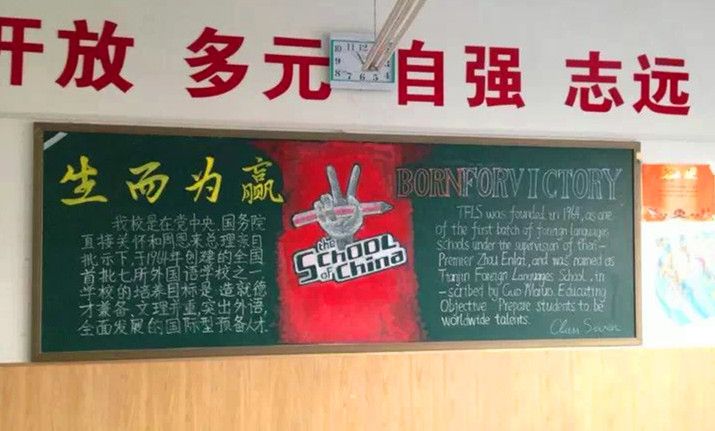 开放 多元 自强 志远
12
11
1
10
2
9
3
8
4
7
6
5
生而为赢
我校是在党中央、国务院
直接关怀和周恩来总理亲自
批示下,于1964年创建的全国
首批七所外国语学校之一
学校的培养目标是造就德
才兼备,文理并重,突出外语,
全面发展的国际型预备人才
the
SCHOOL
of China
BORN FOR VICTORY
TFLS was founded in 1964, as one
of the first batch of foreign languages
schools under the supervision of then-
Premier Zhou Enlai, and was named as
Tianjin Foreign Languages School, in-
scribed by Guo Moruo. Educating
Objective "Prepare students to be
worldwide talents.
Class Seven